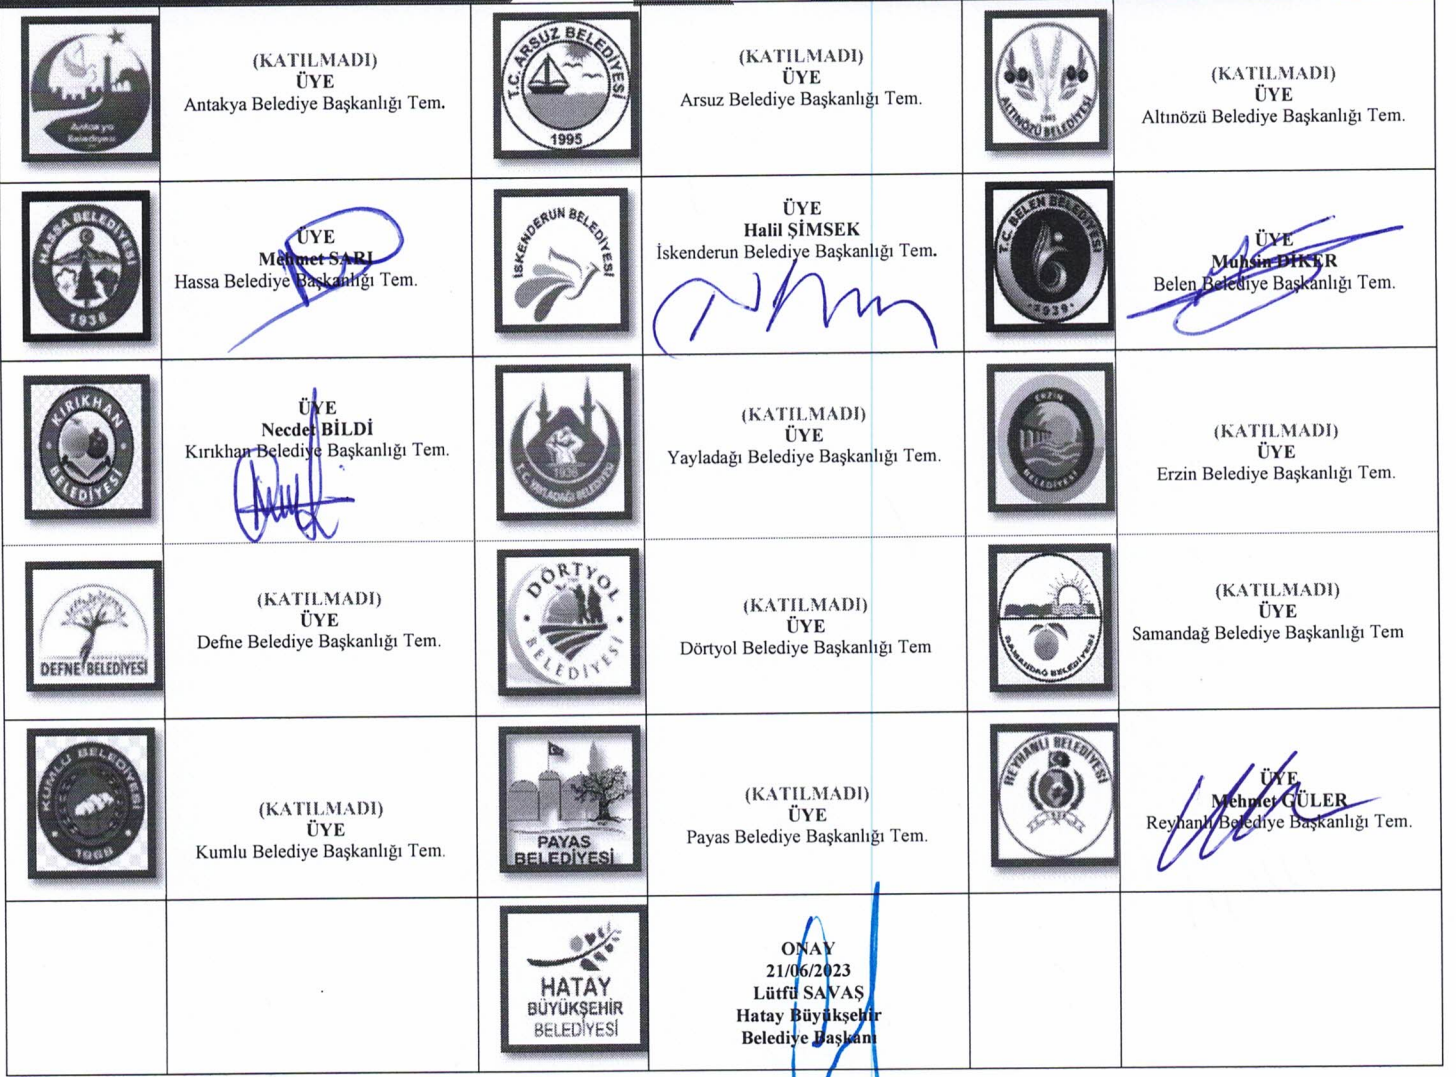 Antakya
Belediyesi
(KATILMADI)
ÜYE
Antakya Belediye Başkanlığı Tem.
T.C. ARSUZ BELEDİYESİ
1995
(KATILMADI)
ÜYE
Arsuz Belediye Başkanlığı Tem.
1945
ALTINÖZÜ BELEDİYESİ
(KATILMADI)
ÜYE
Altınözü Belediye Başkanlığı Tem.
HASSA BELEDİYESİ
1938
ÜYE
Mehmet SARI
Hassa Belediye Başkanlığı Tem.
İSKENDERUN BELEDİYESİ
ÜYE
Halil ŞİMSEK
İskenderun Belediye Başkanlığı Tem.
T.C. BELEN BELEDİYESİ
1939
ÜYE
Muhsin DİKER
Belen Belediye Başkanlığı Tem.
KIRIKHAN
BELEDİYESİ
ÜYE
Necdet BİLDİ
Kırıkhan Belediye Başkanlığı Tem.
T.C. YAYLADAĞI BELEDİYESİ
(KATILMADI)
ÜYE
Yayladağı Belediye Başkanlığı Tem.
ERZİN
BELEDİYESİ
(KATILMADI)
ÜYE
Erzin Belediye Başkanlığı Tem.
DEFNE BELEDİYESİ
(KATILMADI)
ÜYE
Defne Belediye Başkanlığı Tem.
DÖRTYOL
BELEDİYESİ
(KATILMADI)
ÜYE
Dörtyol Belediye Başkanlığı Tem
SAMANDAĞ BELEDİYESİ
(KATILMADI)
ÜYE
Samandağ Belediye Başkanlığı Tem
KUMLU BELEDİYESİ
1968
(KATILMADI)
ÜYE
Kumlu Belediye Başkanlığı Tem.
PAYAS
BELEDİYESİ
(KATILMADI)
ÜYE
Payas Belediye Başkanlığı Tem.
REYHANLI BELEDİYESİ
ÜYE
Mehmet GÜLER
Reyhanlı Belediye Başkanlığı Tem.
HATAY
BÜYÜKŞEHİR
BELEDİYESİ
ONAY
21/06/2023
Lütfü SAVAŞ
Hatay Büyükşehir
Belediye Başkanı